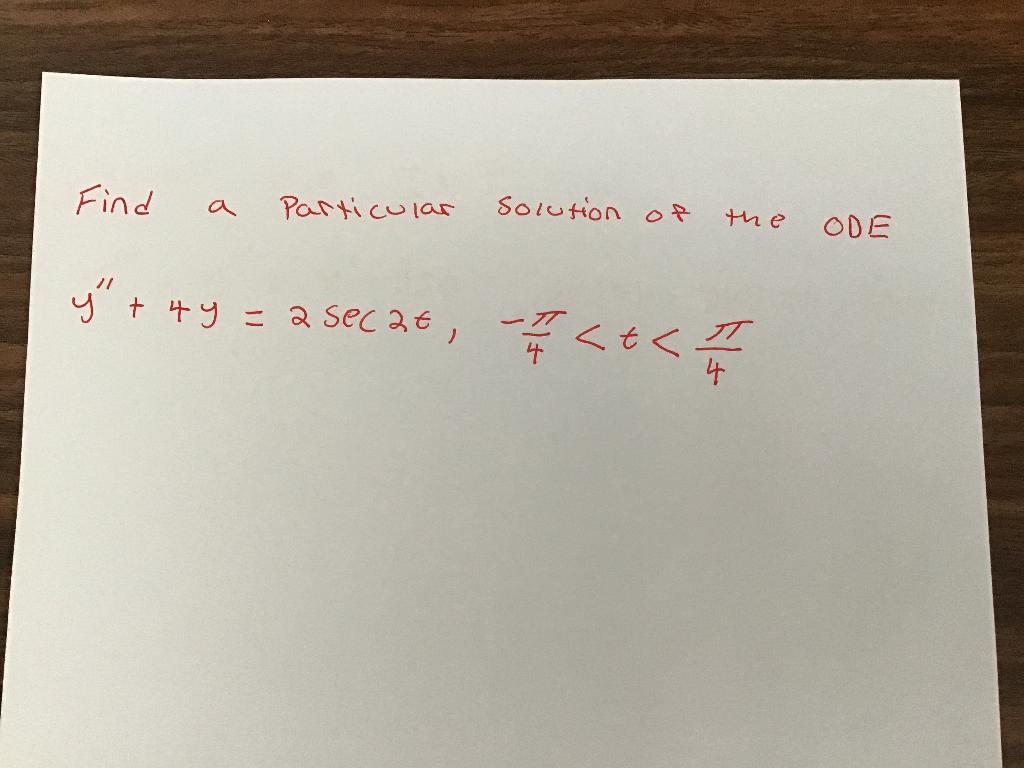 Find a Particular Solution of the ODE
y'' + 4y = 2 sec 2t, -π/4 < t < π/4